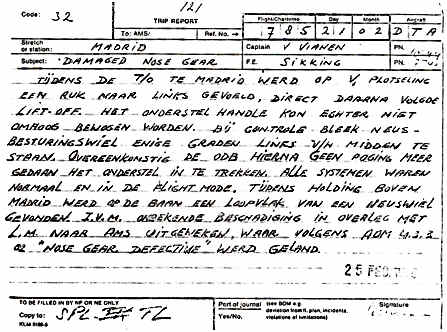 121
Code: 32
TRIP REPORT
Flight/Chartername Day Month Aircraft
To: AMS/ Ref. No. → 785 21 02 DTA
Stretch or station: MADRID Captain V VIANEN PN.
Subject: DAMAGED NOSE GEAR F.E. SIKKING PN.
TIJDENS DE T/O TE MADRID WERD OP V, PLOTSELING
EEN RUK NAAR LINKS GEVOELD, DIRECT DAARNA VOLGDE
LIFT-OFF. HET ONDERSTEL HANDLE KON ECHTER NIET
OMHOOG BEWOGEN WORDEN. BIJ CONTROLE BLEEK NEUS-
BESTURINGSWIEL ENIGE GRADEN LINKS V/H MIDDEN TE
STAAN. OVEREENKOMSTIG DE ODB HIERNA GEEN POGING MEER
GEDAAN HET ONDERSTEL IN TE TREKKEN. ALLE SYSTEMEN WAREN
NORMAAL EN IN DE FLIGHT MODE. TIJDENS HOLDING BOVEN
MADRID WERD OP DE BAAN EEN LOOPVLAK VAN EEN NEUSWIEL
GEVONDEN. I.V.M. ONBEKENDE BESCHADIGING IN OVERLEG MET
L.M. NAAR AMS UITGEWEKEN, WAAR VOLGENS AOM 4.3.3
02 "NOSE GEAR DEFECTIVE" WERD GELAND.
25 FEB.
TO BE FILLED IN BY NP OR NE ONLY
Copy to: SPL-IV TL
Part of journal Yes/No.
(see BOM e.g. deviation from fl. plan, incidents, violations of limitations)
Signature